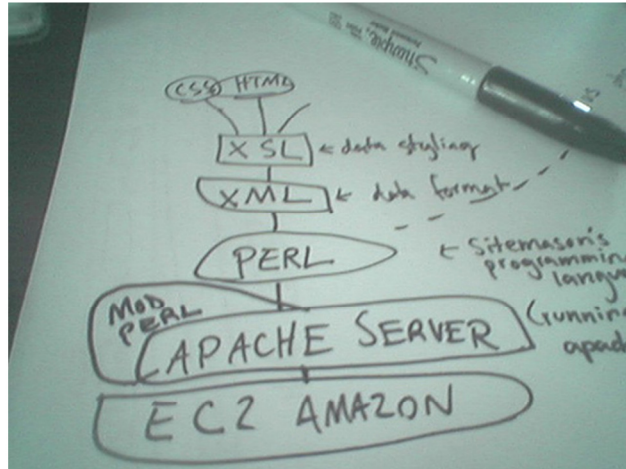 Sharpie
CSS HTML
XSL ← data styling
XML ← data format
PERL ← Sitemason's
programming
MOD
PERL
APACHE SERVER
EC2 AMAZON